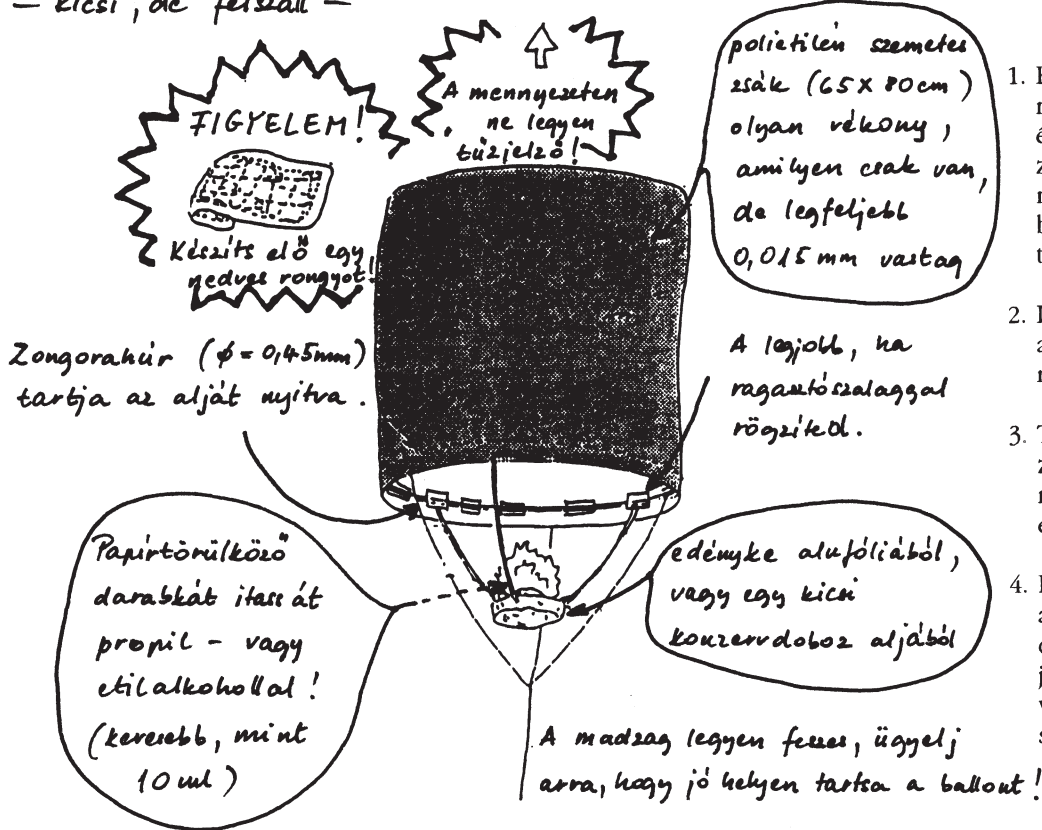 — kicsi, de felszáll —
FIGYELEM!
Készíts elő egy
nedves rongyot!
A mennyezeten
ne legyen
tűzjelző!
polietilén szemetes
zsák (65 x 80 cm)
olyan vékony,
amilyen csak van,
de legfeljebb
0,015 mm vastag
Zongorahúr (ϕ = 0,45mm)
tartja az alját nyitva.
A legjobb, ha
ragasztószalaggal
rögzíted.
Papírtörülköző
darabkát itass át
propil- vagy
etilalkohollal!
(kevesebb, mint
10 ml)
edényke alufóliából,
vagy egy kicsi
konzervdoboz aljából
A madzag legyen feszes, ügyelj
arra, hogy jó helyen tartsa a ballont!
1.
2.
3.
4.